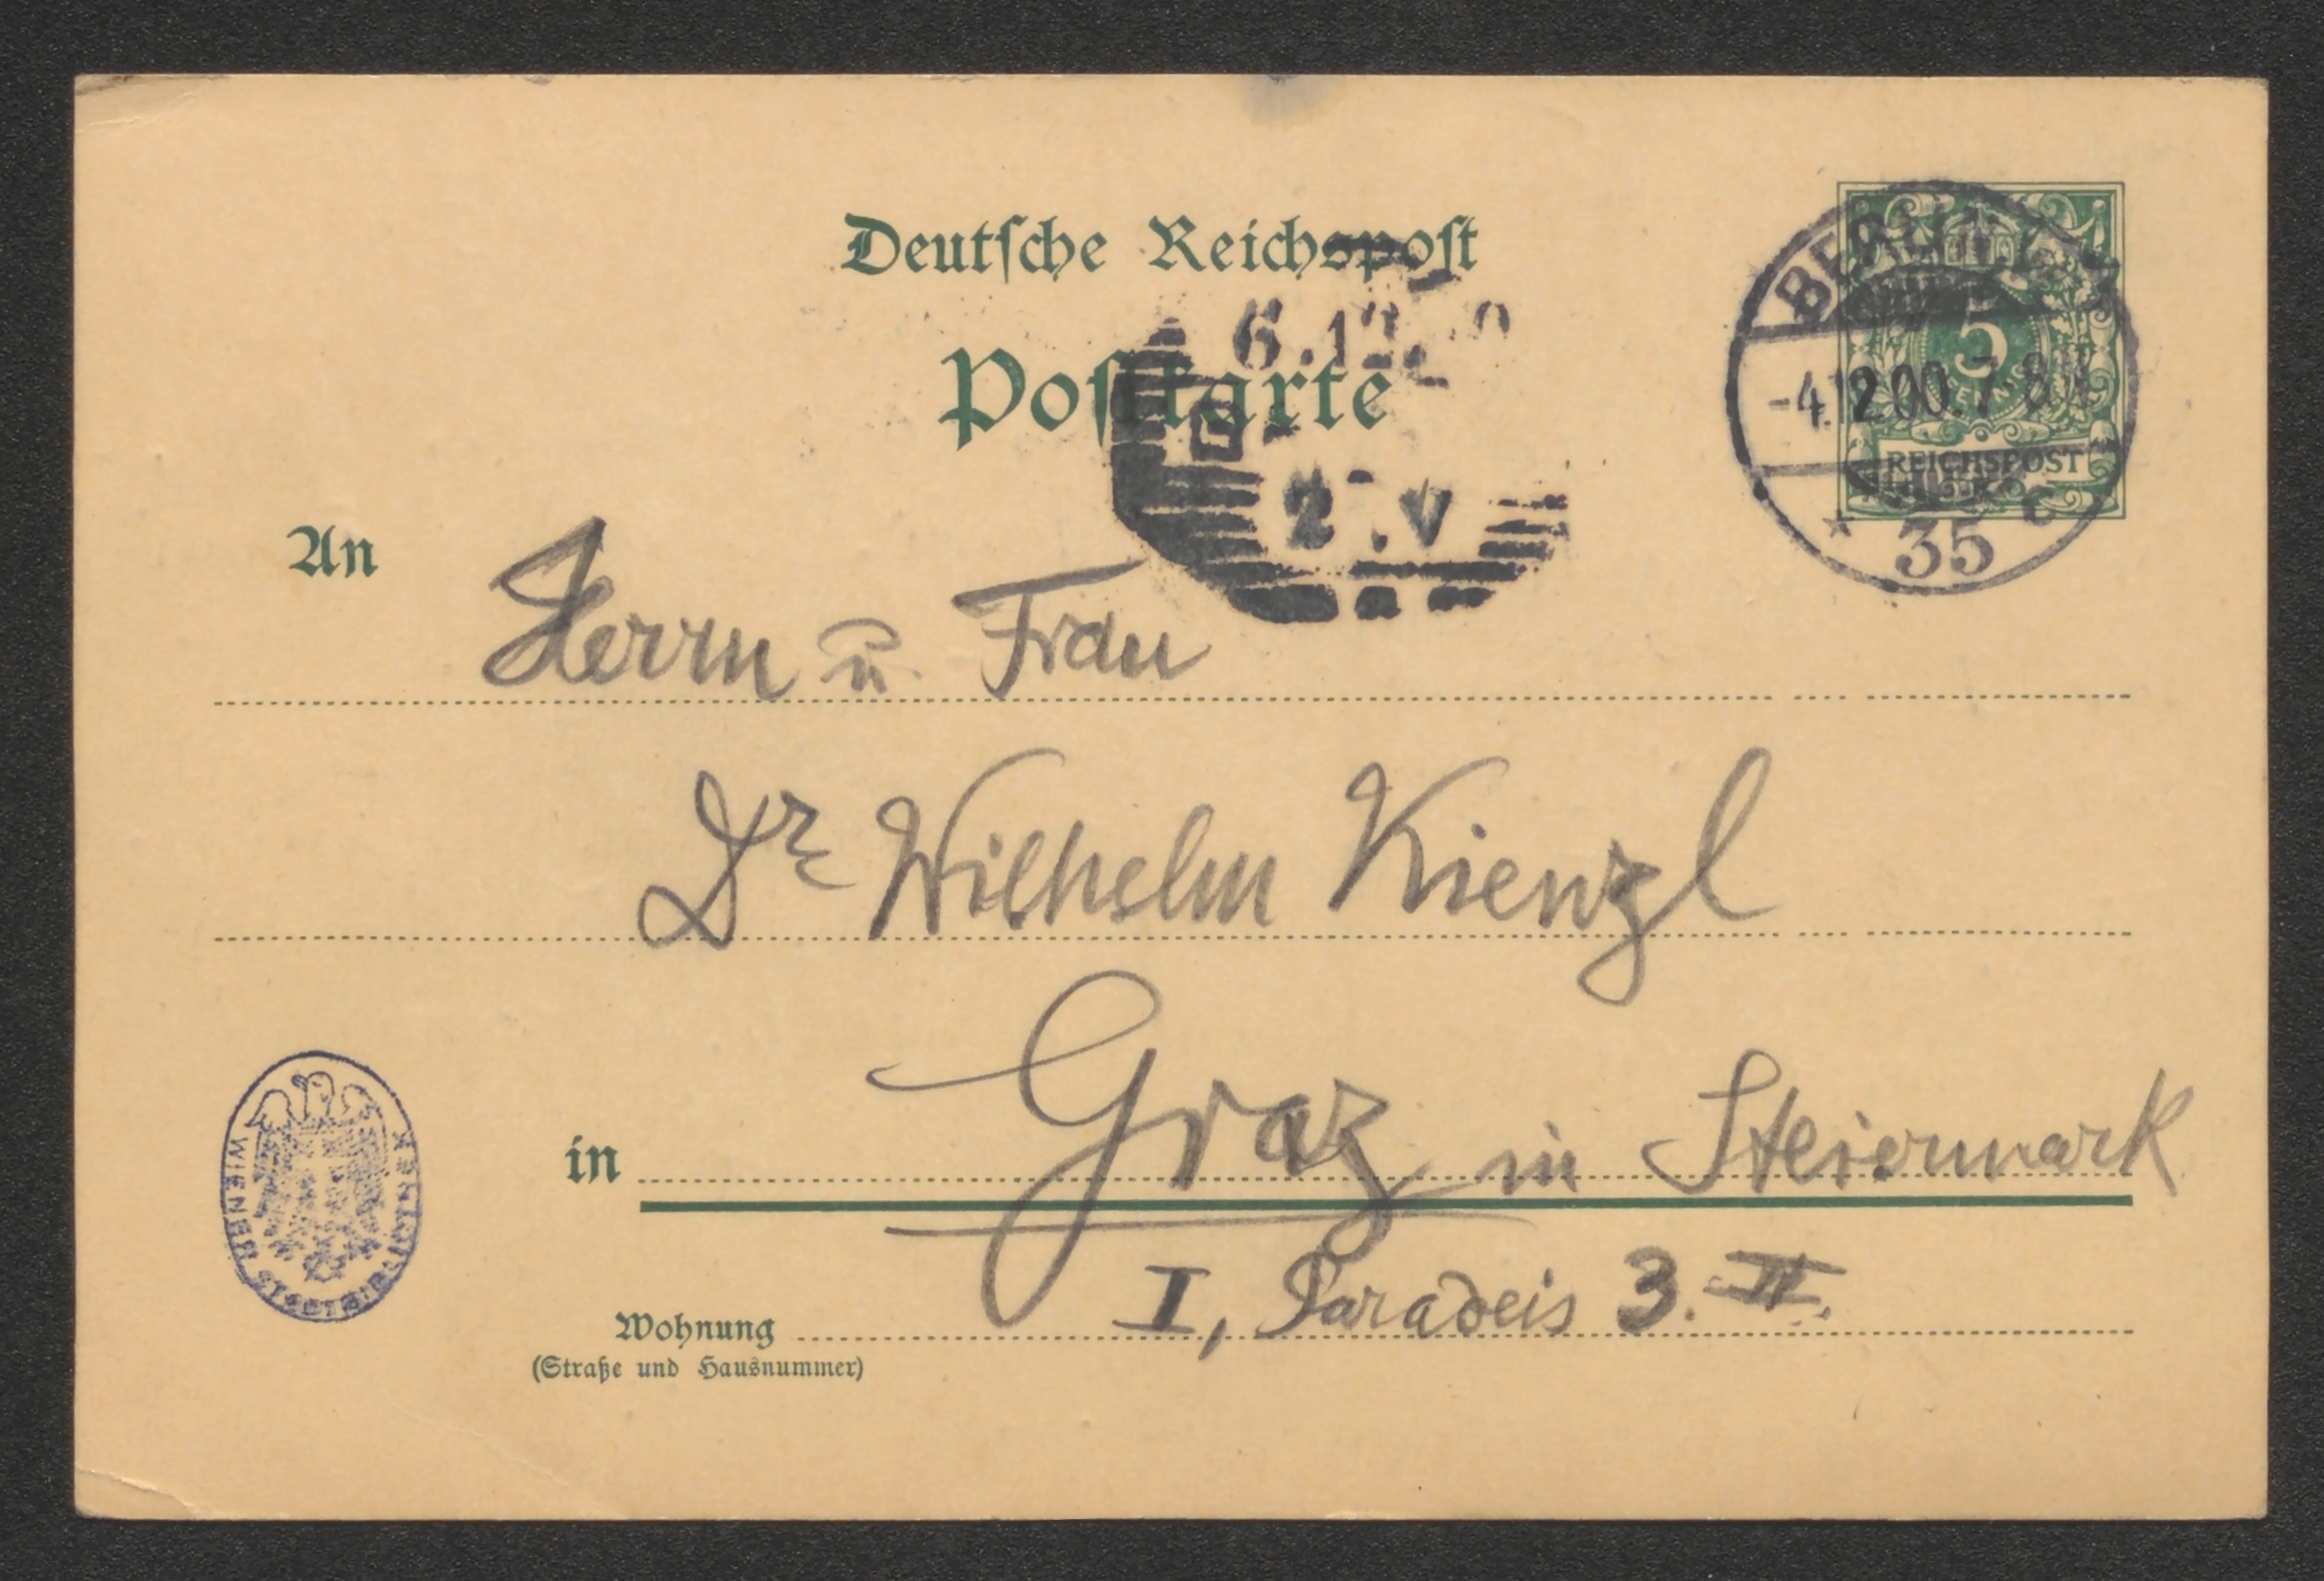 Deutsche Reichspost
Postkarte
6.12.
2.V
BERLIN W
-4.12.00.7-8N
5
REICHSPOST
* 35 c
An
Herrn u. Frau
Dr Wilhelm Kienzl
in Graz in Steiermark
Wohnung I, Paradeis 3. II.
(Straße und Hausnummer)
WIENER STADTBIBLIOTHEK